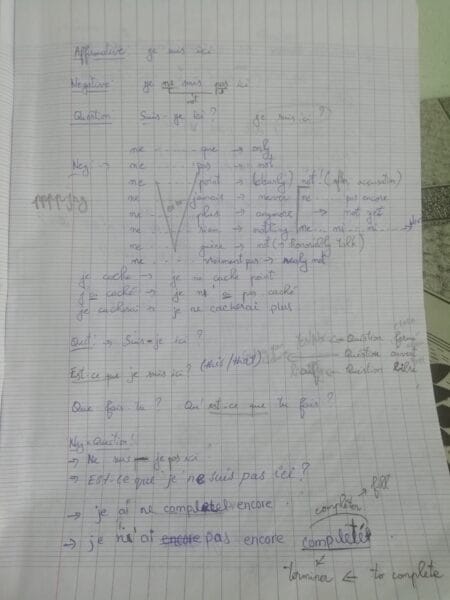 Affirmative je suis ici
Negative je ne suis pas ici
not
Question Suis-je ici? je suis ici?
ne ..... que → only
Neg: → ne ..... pas → not
ne point → (clearly) not (after accusation)
ne jamais → never ne ... pas encore
ne plus → anymore → not yet
ne rien → nothing ne ... ni ... ni ... →
ne guère → not (→ Formally talk)
ne vraiment pas → really not
je cache → je ne cache point
j'ai caché → je n'ai pas caché
je cacherai → je ne cacherai plus
Quti: → Suis-je ici?
Question fermé
Est-ce que je suis ici? (this/that) Question
Question
Que fais tu? Qu'est-ce que tu fais?
Neg+Question:
→ Ne suis-je pas ici
→ Est-ce que je ne suis pas ici?
fill
→ je ai ne completer encore
completer
→ je n'ai encore pas encore completé
terminer ← to complete